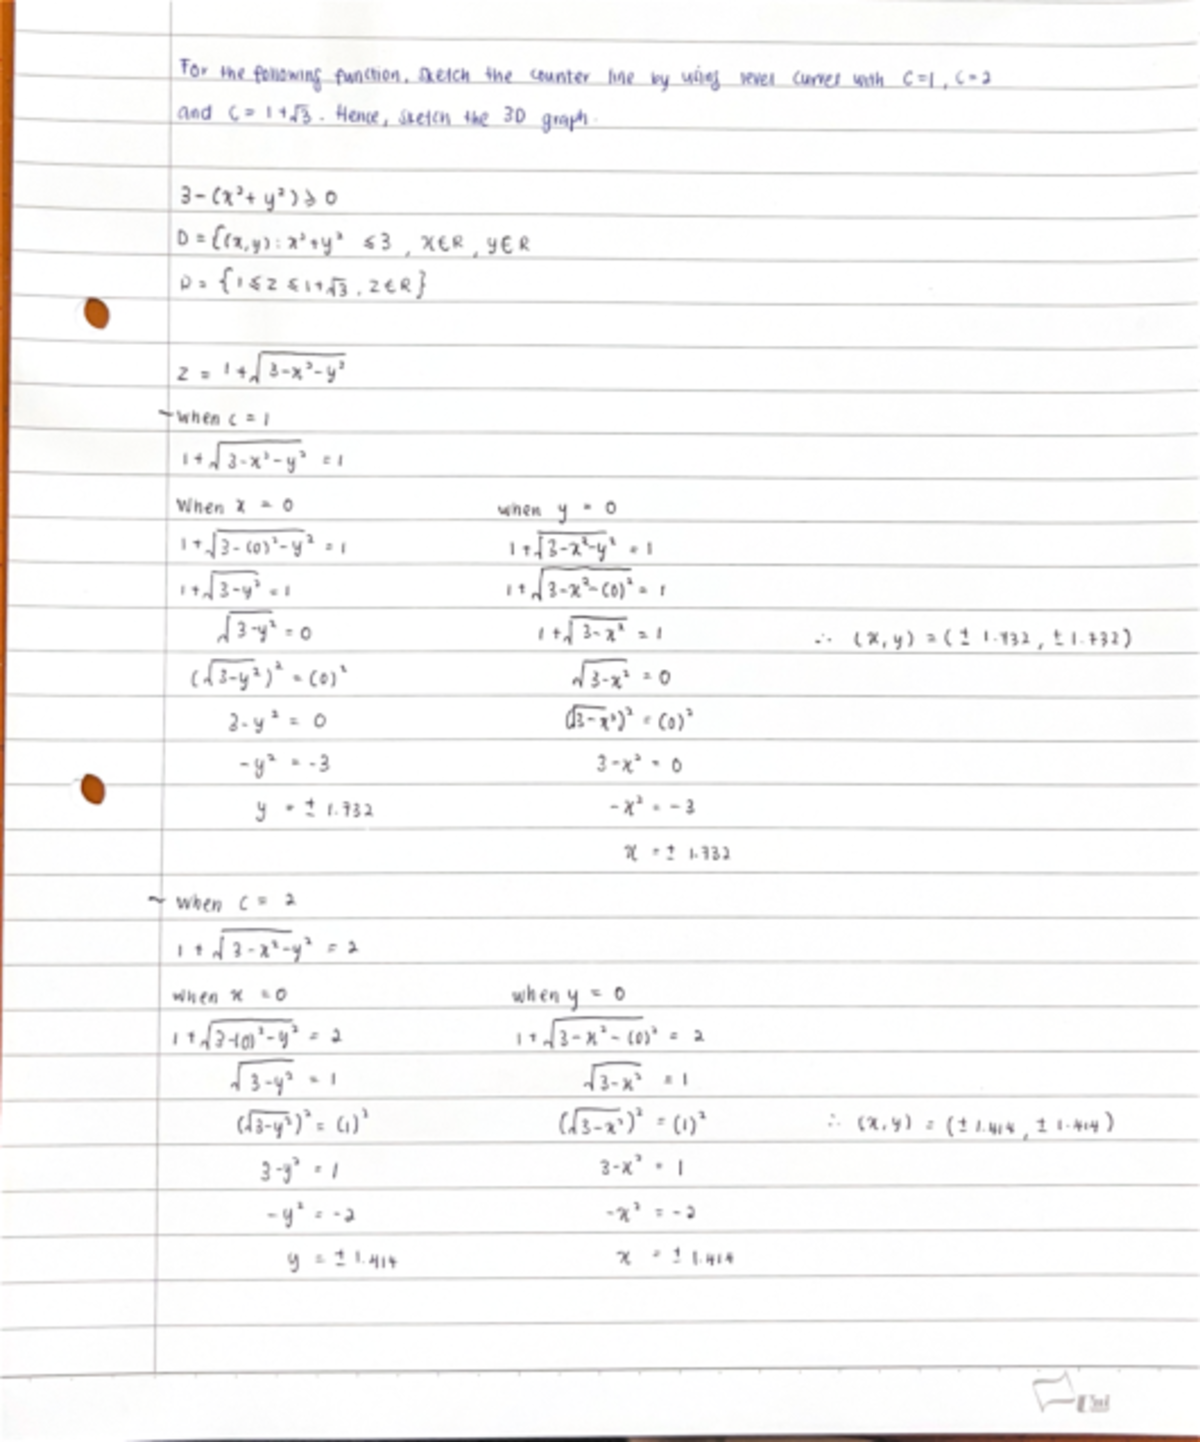 For the following function, sketch the counter line by using level curves with C=1, C=2
and C = 1+√3. Hence, sketch the 3D graph.
3-(x²+y²)≥0
D = {(x,y): x²+y² ≤3, x∈R, y∈R
R = {1≤z≤1+√3, z∈R}
z = 1+√3-x²-y²
~ when c = 1
1+√3-x²-y² = 1
When x = 0
1+√3-(0)²-y² = 1
1+√3-y² = 1
√3-y² = 0
(√3-y²)² = (0)²
3-y² = 0
-y² = -3
y = ± 1.732
when y = 0
1+√3-x²-y² = 1
1+√3-x²-(0)² = 1
1+√3-x² = 1
√3-x² = 0
(√3-x²)² = (0)²
3-x² = 0
-x² = -3
x = ± 1.732
∴ (x,y) = (± 1.732, ± 1.732)
~ when c = 2
1+√3-x²-y² = 2
when x = 0
1+√3-(0)²-y² = 2
√3-y² = 1
(√3-y²)² = (1)²
3-y² = 1
-y² = -2
y = ± 1.414
when y = 0
1+√3-x²-(0)² = 2
√3-x² = 1
(√3-x²)² = (1)²
3-x² = 1
-x² = -2
x = ± 1.414
∴ (x,y) = (± 1.414, ± 1.414)